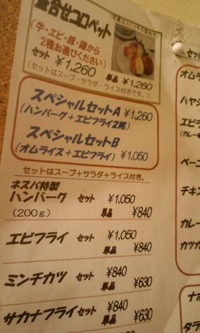 盛合せコロペット
(牛・エビ・豚・鶏から
2種お選びください)
セット ¥1,260 単品 ¥1,260
(セットはスープ・サラダ・ライス付きです。)
スペシャルセットA ¥1,260
(ハンバーグ+エビフライ2尾)
スペシャルセットB
(オムライス+エビフライ) ¥1,050
セットはスープ+サラダ+ライス付き。
ネスパ特製
ハンバーグ セット ¥1,050
(200g) 単品 ¥840
エビフライ セット ¥1,050
単品 ¥840
ミンチカツ セット ¥840
単品 ¥630
サカナフライ セット ¥840
単品 ¥630
オムラ
ハヤシ
エビ
(カレー
ビーフ
チキン
カレー
カツカ
ナポ
タラ